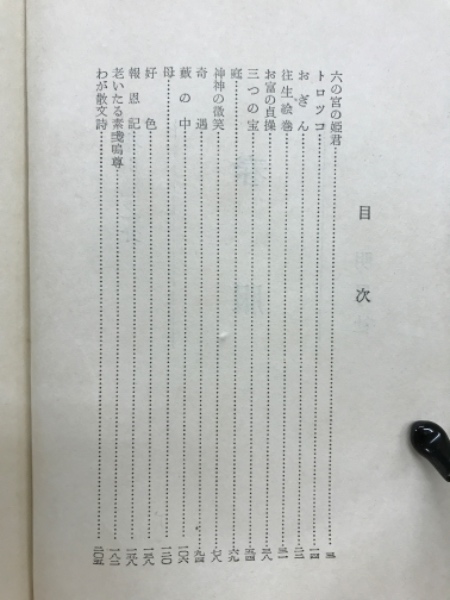 目次
六の宮の姫君
トロツコ
おぎん
往生絵巻
お富の貞操 三八
三つの宝 五四
庭 六九
神神の微笑 七八
奇遇 九四
藪の中 一〇六
母 一二〇
好色 一三八
報恩記 一五八
老いたる素戔嗚尊 一八二
わが散文詩 二〇五